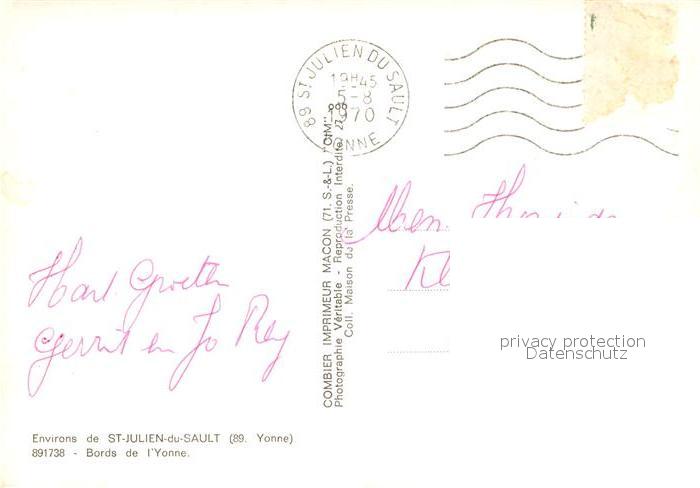 89 ST JULIEN DU SAULT
19H45
5-8
1970
YONNE
Hart. Groeten
Gerrit en Jo Rey
COMBIER IMPRIMEUR MACON (71. S.-&-L.) "CIM"
Photographie Véritable - Reproduction Interdite
Coll. Maison de la Presse.
privacy protection
Datenschutz
Environs de ST-JULIEN-du-SAULT (89. Yonne)
891738 - Bords de l'Yonne.